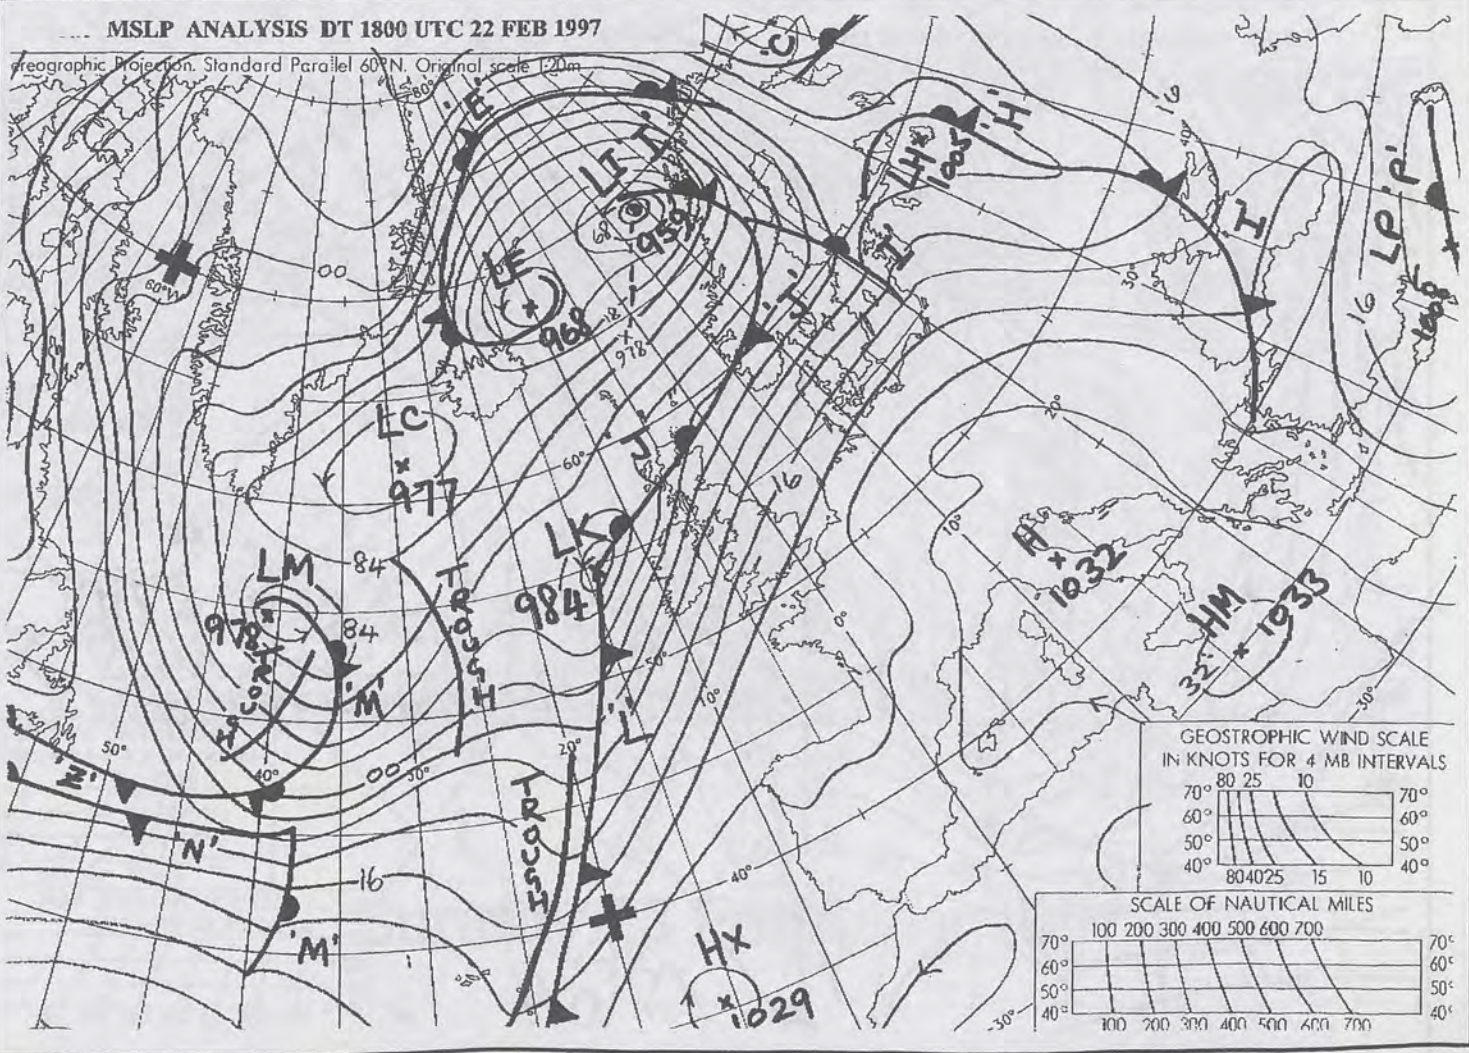 MSLP ANALYSIS DT 1800 UTC 22 FEB 1997
ereographic Projection. Standard Parallel 60°N. Original scale 1:20m
'C'
16
80°
'E'
'H'
40°
LH
1005
LI
'I'
'P'
LP
1008
959
'I'
'I'
60°W
00
30°
16
LE
968
978
'J'
20°
LC
977
60°
'J'
16
10°
LK
984
H
1032
LM
978
84
84
TROUGH
TROUGH
'M'
HM
1033
32
0°
50°
'L'
10°
30°
50°
'Z'
40°
00
30°
20°
TROUGH
'N'
16
'M'
40°
HX
1029
30°
GEOSTROPHIC WIND SCALE
IN KNOTS FOR 4 MB INTERVALS
80 25 10
70° 70°
60° 60°
50° 50°
40° 40°
80 40 25 15 10
SCALE OF NAUTICAL MILES
100 200 300 400 500 600 700
70° 70°
60° 60°
50° 50°
40° 40°
100 200 300 400 500 600 700